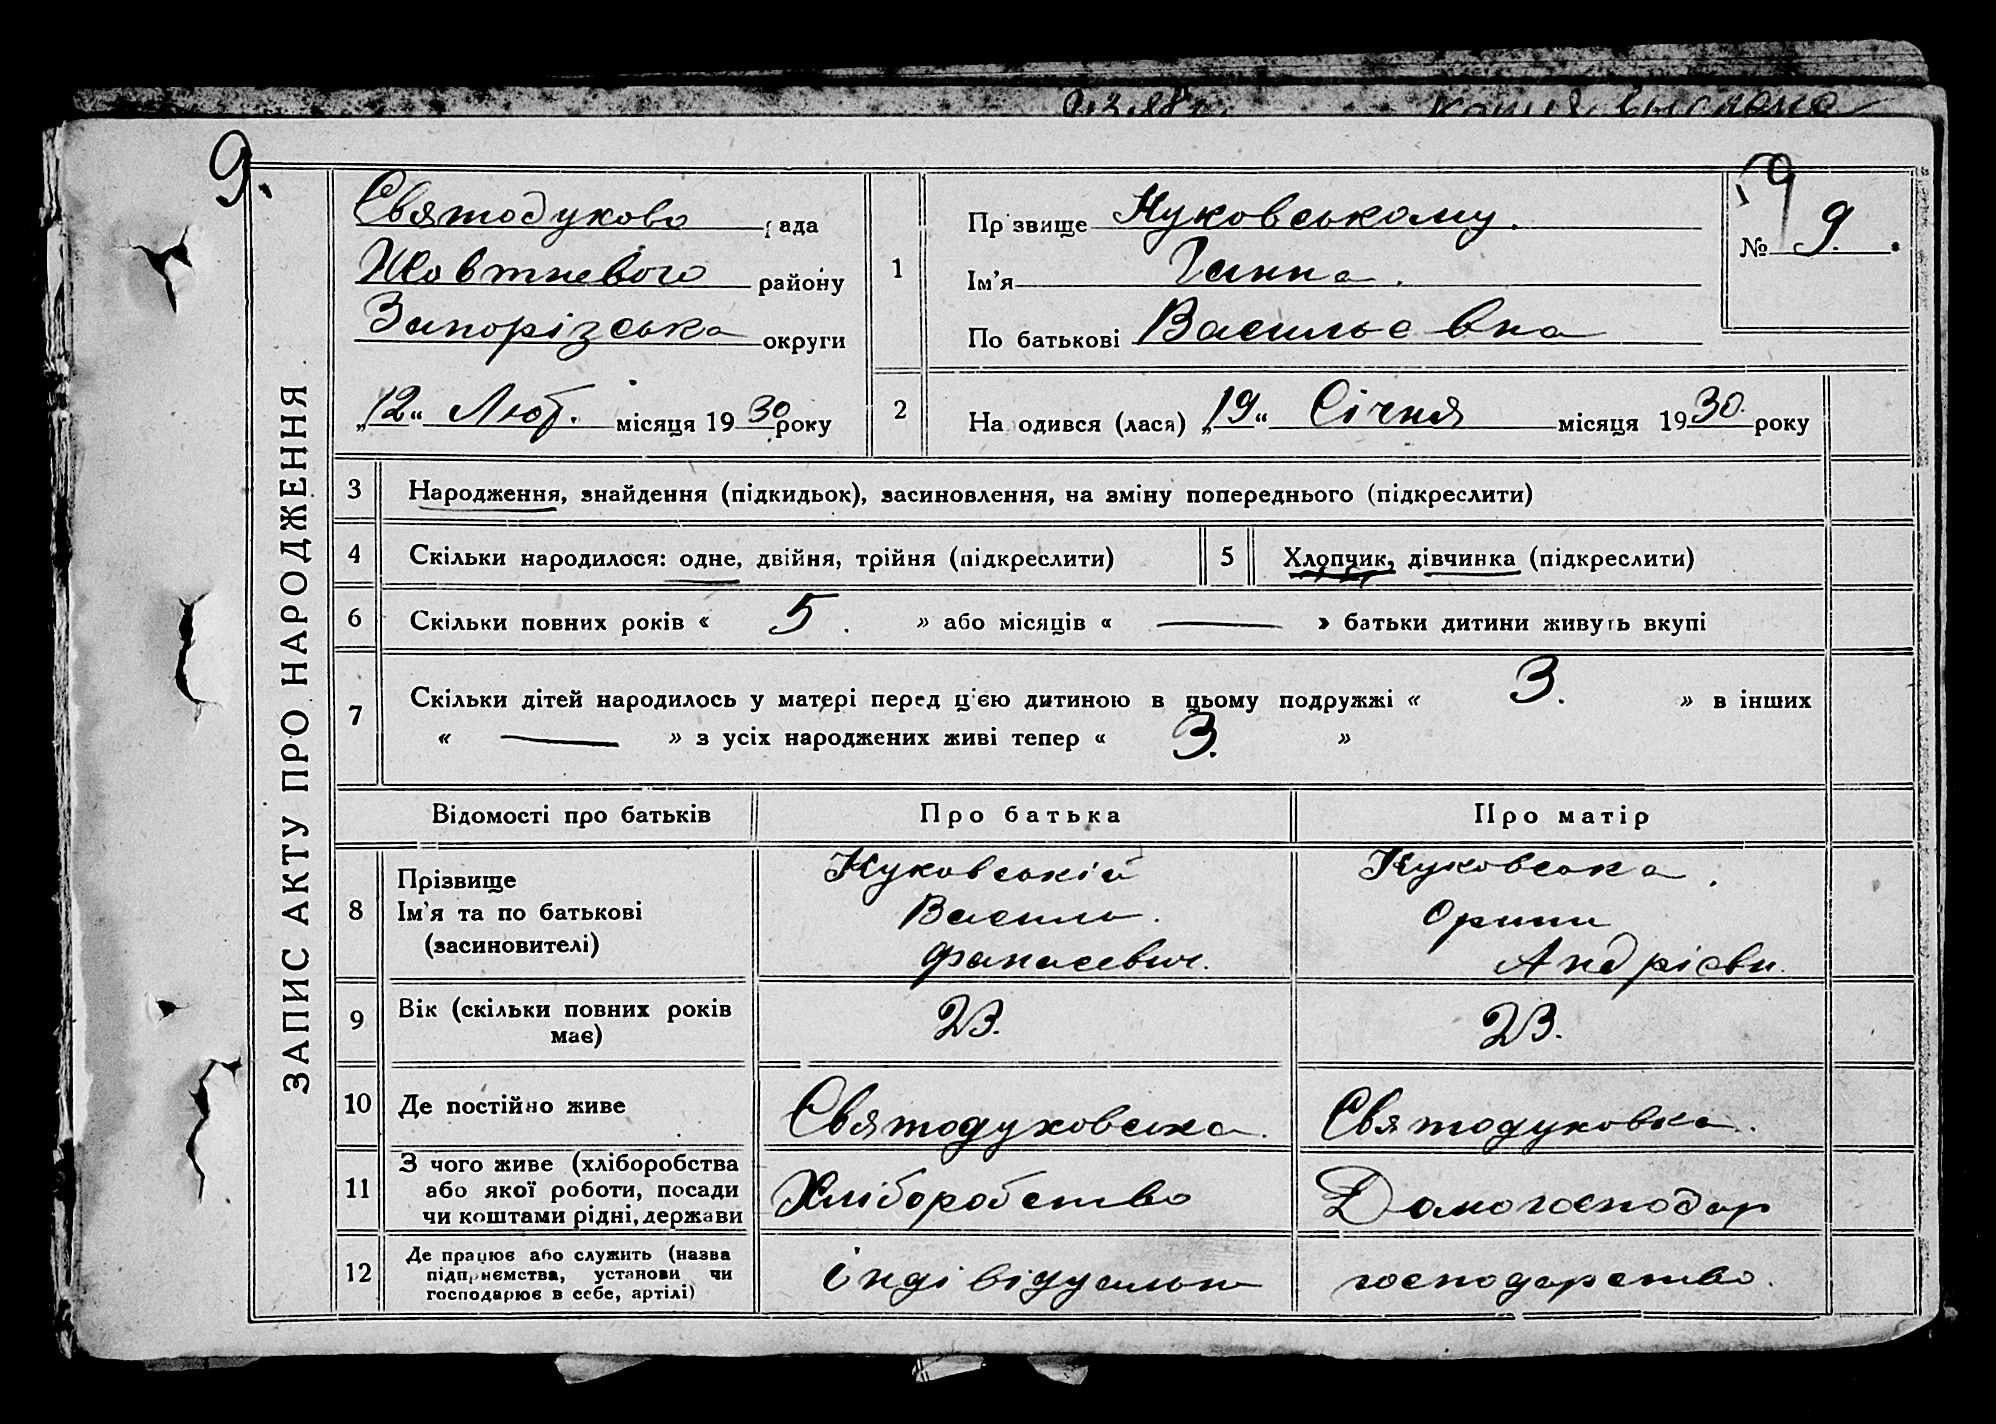 копия выслана
9.
ЗАПИС АКТУ ПРО НАРОДЖЕННЯ
Святодухово рада
Жовтневого району
Запорізська округи
„12“ Лют. місяця 1930 року
1
Прізвище Куковському.
Ім'я Ганна.
По батькові Васильевна
19
№ 9.
2
Народився (лася) „19“ Січня місяця 1930 року
3 Народження, знайдення (підкидьок), засиновлення, на зміну попереднього (підкреслити)
4 Скільки народилося: одне, двійня, трійня (підкреслити) 5 Хлопчик, дівчинка (підкреслити)
6 Скільки повних років « 5. » або місяців « — » батьки дитини живуть вкупі
7 Скільки дітей народилось у матері перед цією дитиною в цьому подружжі « 3. » в інших
« — » з усіх народжених живі тепер « 3. »
Відомості про батьків Про батька Про матір
8 Прізвище Куковський Куковська.
Ім'я та по батькові Василь. Орина
(засиновителі) Фанасевич. Андрієвн.
9 Вік (скільки повних років має) 23. 23.
10 Де постійно живе Святодуховська. Святодуховка.
11 З чого живе (хліборобства Хліборобство Домогосподар
або якої роботи, посади
чи коштами рідні, держави
12 Де працює або служить (назва індівідуальне господарство.
підприємства, установи чи
господарює в себе, артілі)